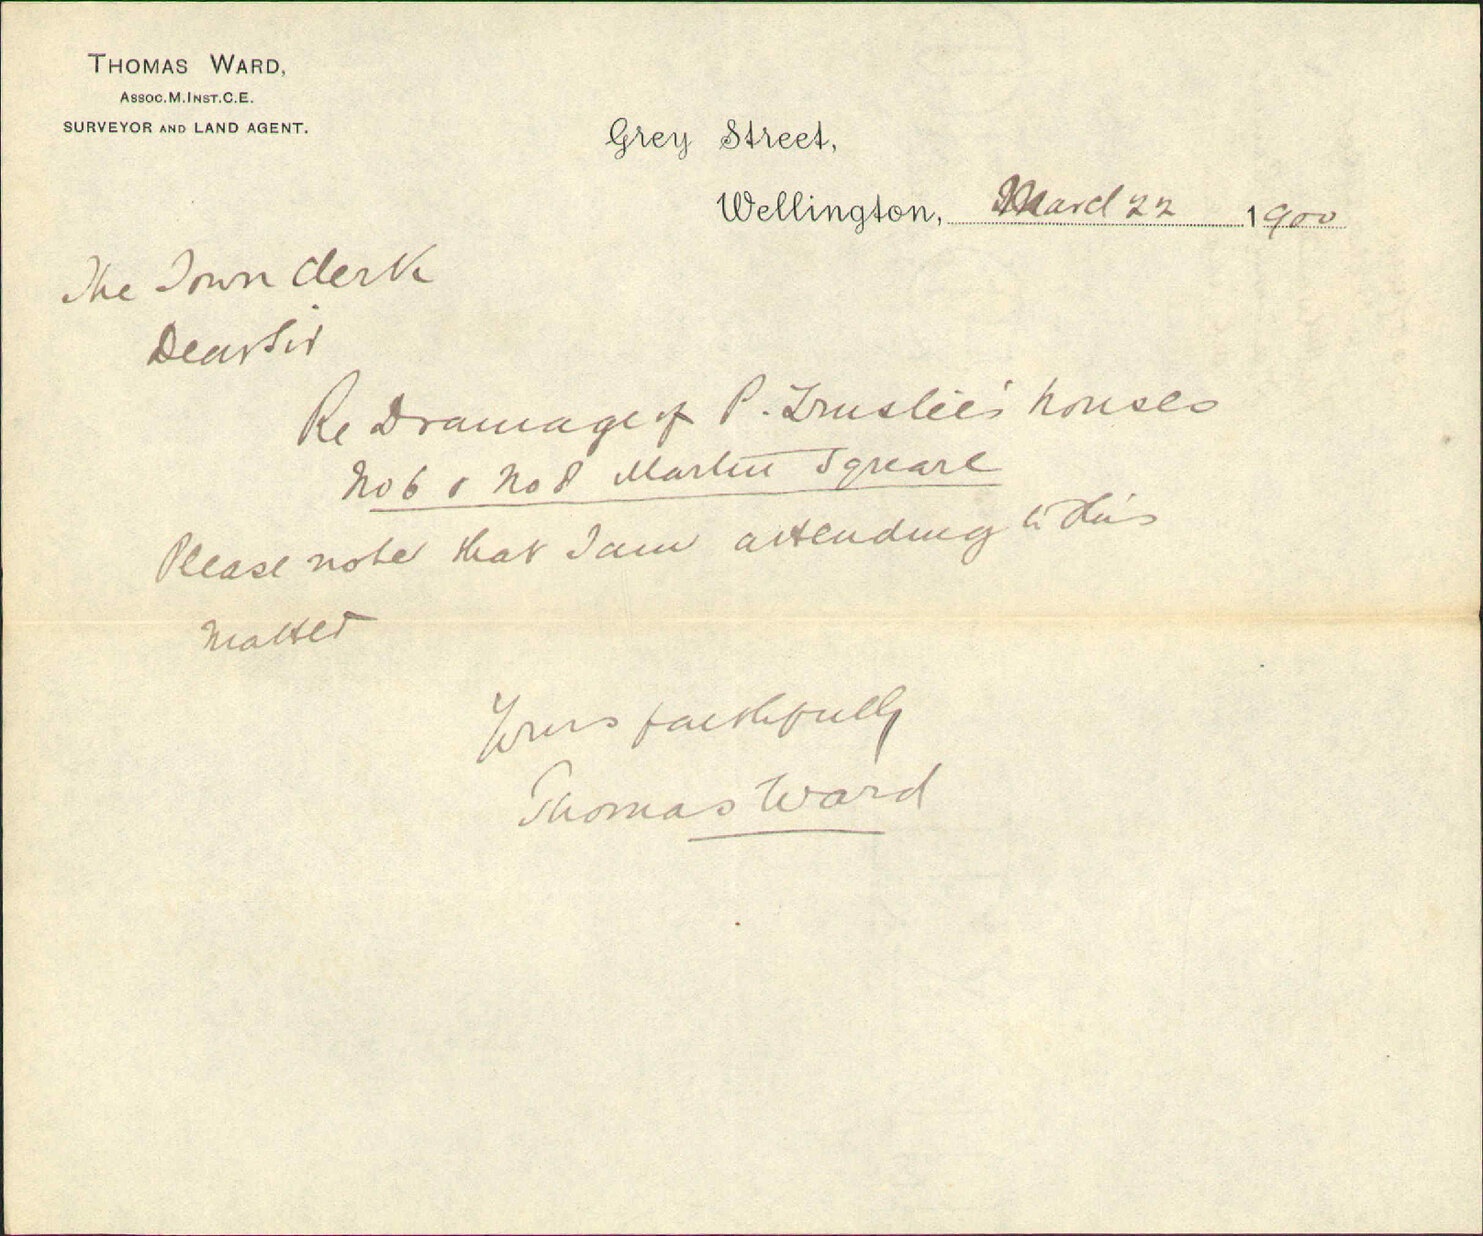 THOMAS WARD,
ASSOC.M.INST.C.E.
SURVEYOR AND LAND AGENT.
Grey Street,
Wellington, March 22 1900
The Town Clerk
Dear Sir
Re Drainage of P. Trustee's houses
No 6 & No 8 Martin Square
Please note that I am attending to this
matter
Yours faithfully
Thomas Ward